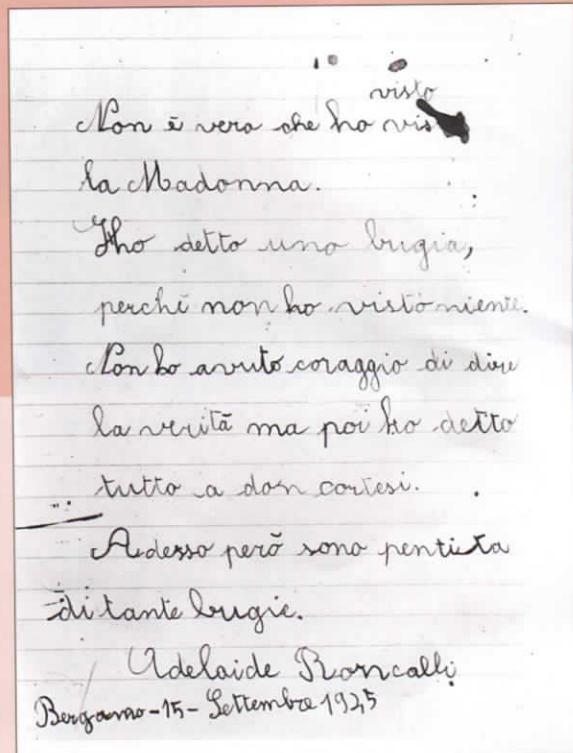 visto
Non è vero che ho vis
la Madonna.
Ho detto una bugia,
perché non ho visto niente.
Non ho avuto coraggio di dire
la verità ma poi ho detto
tutto a don cortesi.
Adesso però sono pentita
di tante bugie.
Adelaide Roncalli
Bergamo-15-Settembre 1945